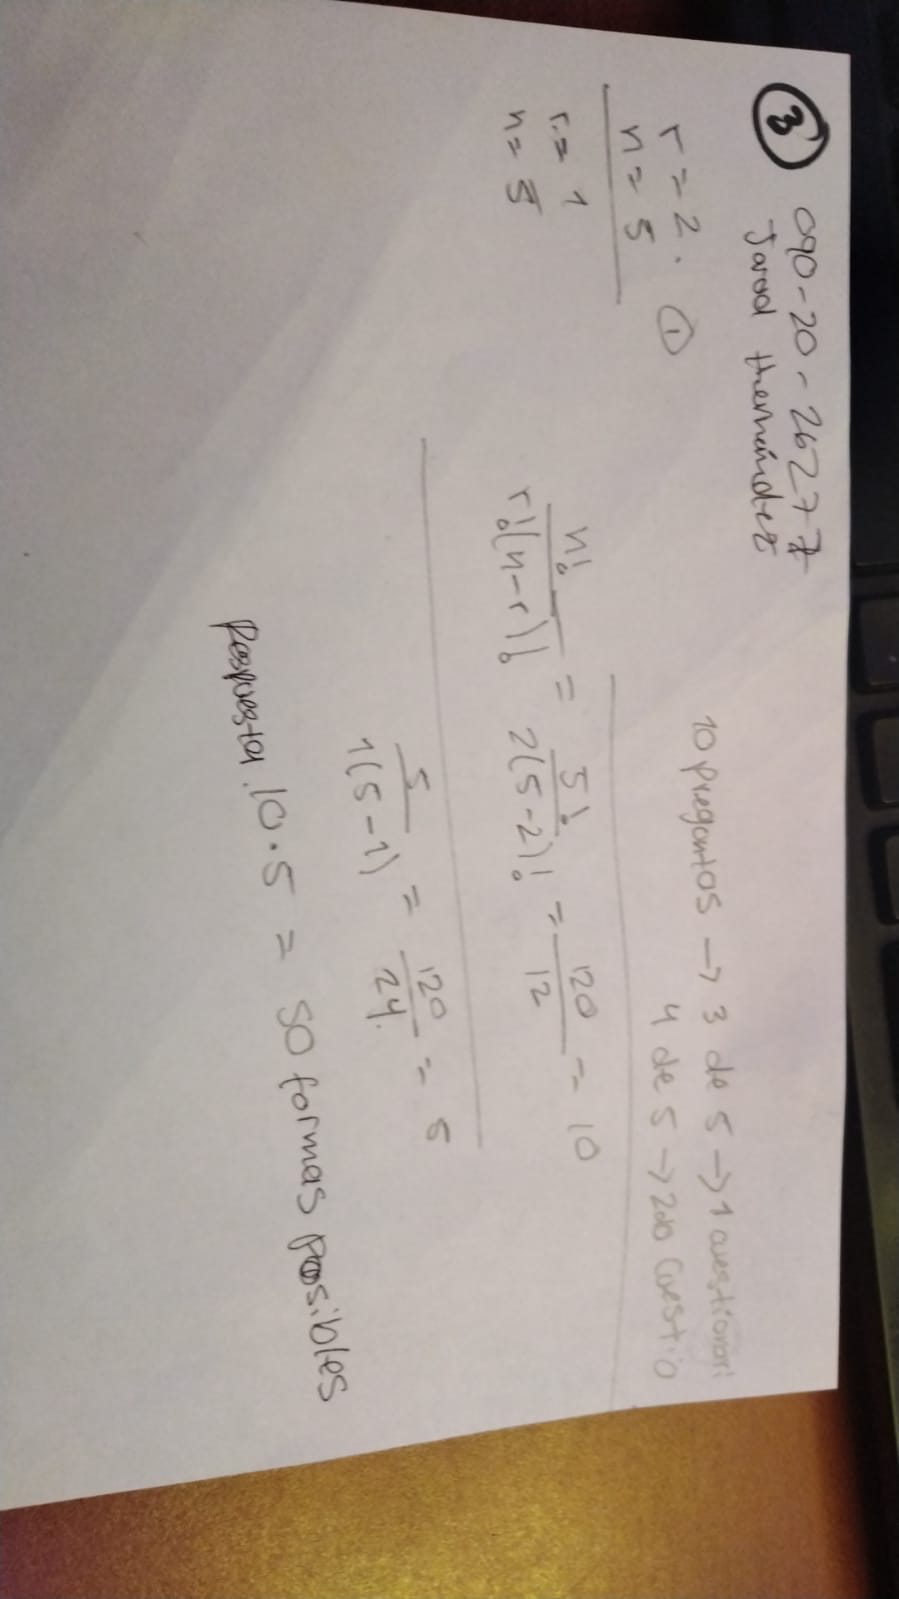 3
090-20-26277
Jarod Hernández
r = 2.
n = 5
①
r = 1
n = 5
10 preguntas → 3 de 5 → 1 cuestionari
4 de 5 → 2do Cuestio
n! / r!(n-r)! = 5! / 2(5-2)! = 120 / 12 = 10
5 / 1(5-1) = 120 / 24. = 5
Respuesta: 10 · 5 = 50 formas posibles